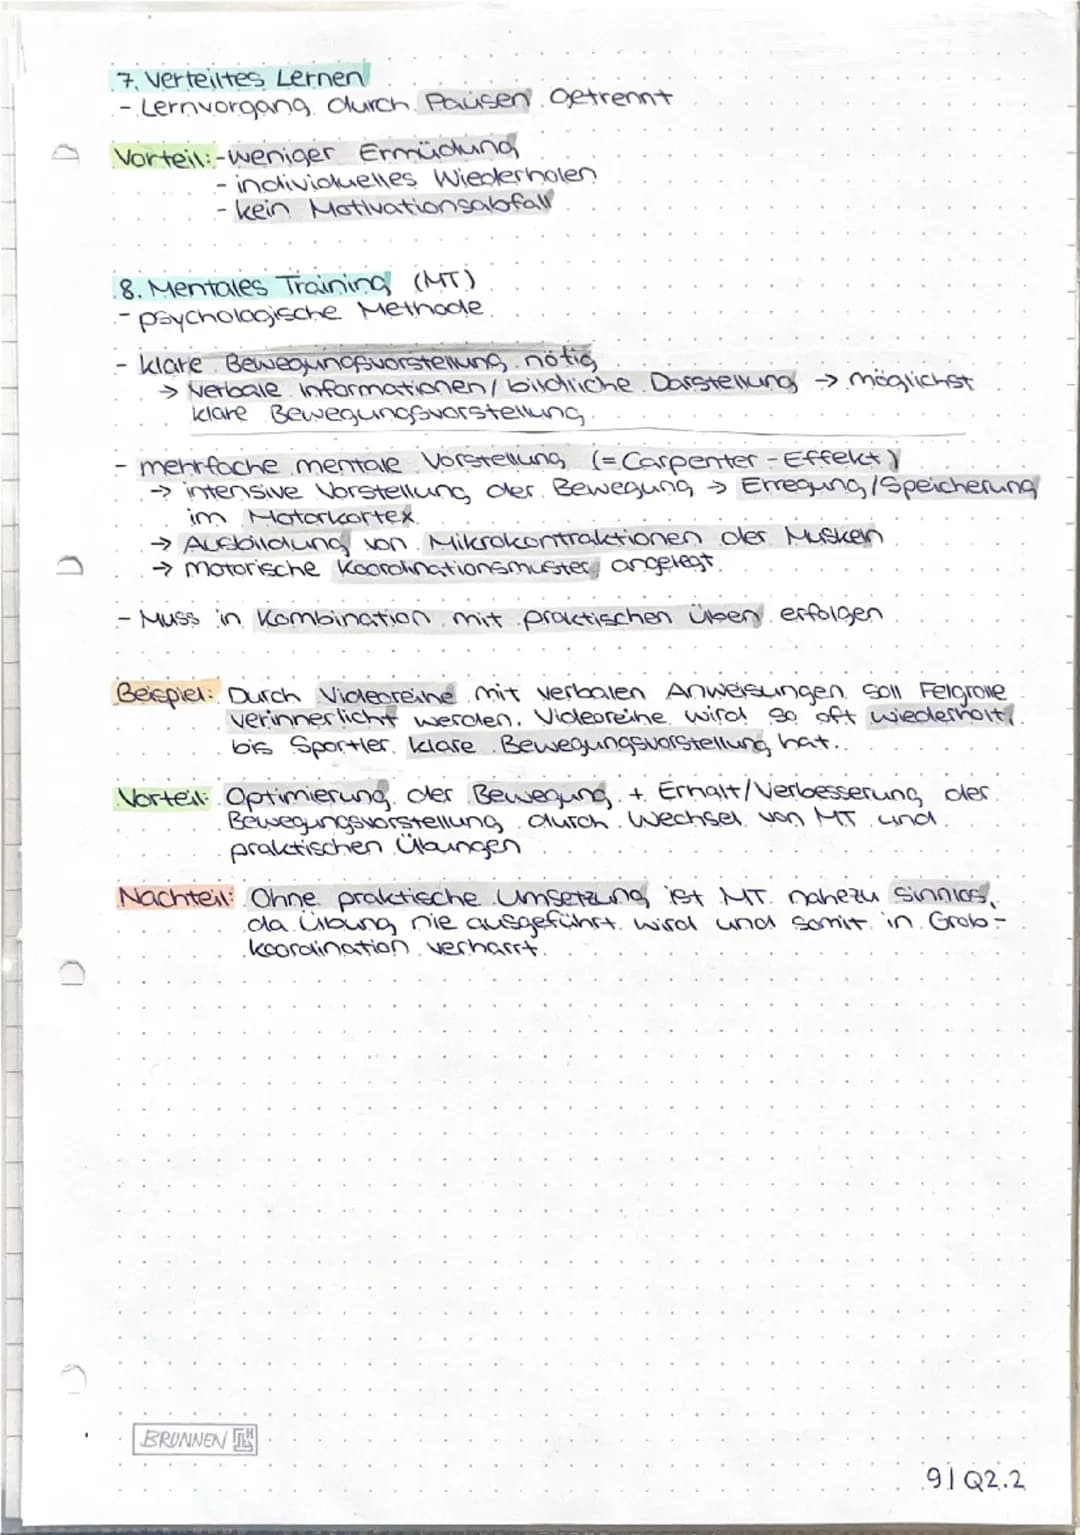 7. Verteiltes Lernen
- Lernvorgang durch Pausen getrennt
Vorteil: - weniger Ermüdung
- individuelles Wiederholen
- kein Motivationsabfall
8. Mentales Training (MT)
- psychologische Methode
- klare Bewegungsvorstellung nötig
→ verbale Informationen / bildliche Darstellung → möglichst
klare Bewegungsvorstellung
- mehrfache mentale Vorstellung (= Carpenter-Effekt)
→ intensive Vorstellung der Bewegung → Erregung/Speicherung
im Motorkortex
→ Ausbildung von Mikrokontraktionen der Muskeln
→ motorische Koordinationsmuster angelegt
- Muss in Kombination mit praktischen Üben erfolgen
Beispiel: Durch Videoreihe mit verbalen Anweisungen soll Felgrolle
verinnerlicht werden. Videoreihe wird so oft wiederholt,
bis Sportler klare Bewegungsvorstellung hat.
Vorteil: Optimierung der Bewegung + Erhalt/Verbesserung der
Bewegungsvorstellung durch Wechsel von MT und
praktischen Übungen
Nachteil: Ohne praktische Umsetzung ist MT nahezu sinnlos,
da Übung nie ausgeführt wird und somit in Grob-
koordination verharrt.
BRUNNEN
9 | Q2.2